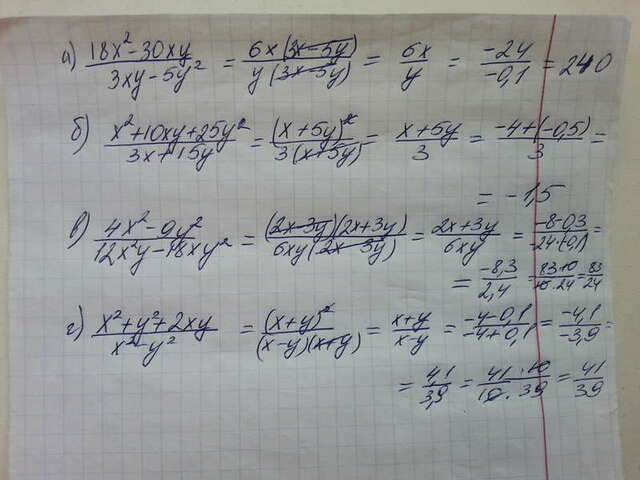 а) (18x²-30xy)/(3xy-5y²) = (6x(3x-5y))/(y(3x-5y)) = 6x/y = -24/-0,1 = 240
б) (x²+10xy+25y²)/(3x+15y) = (x+5y)²/(3(x+5y)) = (x+5y)/3 = (-4+(-0,5))/3 =
= -1,5
в) (4x²-9y²)/(12x²y-18xy²) = ((2x-3y)(2x+3y))/(6xy(2x-3y)) = (2x+3y)/(6xy) = (-8-0,3)/(-24·(-0,1)) =
= -8,3/2,4 = (83·10)/(10·24) = 83/24
г) (x²+y²+2xy)/(x²-y²) = (x+y)²/((x-y)(x+y)) = (x+y)/(x-y) = (-4-0,1)/(-4+0,1) = -4,1/-3,9 =
= 4,1/3,9 = (41·10)/(10·39) = 41/39